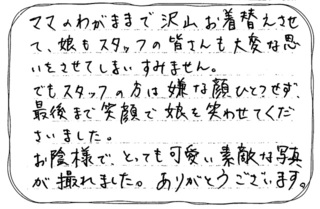 ママのわがままで沢山お着替えさせ
て、娘もスタッフの皆さんも大変な思
いをさせてしまいすみません。
でもスタッフの方は嫌な顔ひとつせず、
最後まで笑顔で娘を笑わせてくだ
さいました。
お陰様で、とっても可愛い素敵な写真
が撮れました。ありがとうございます。